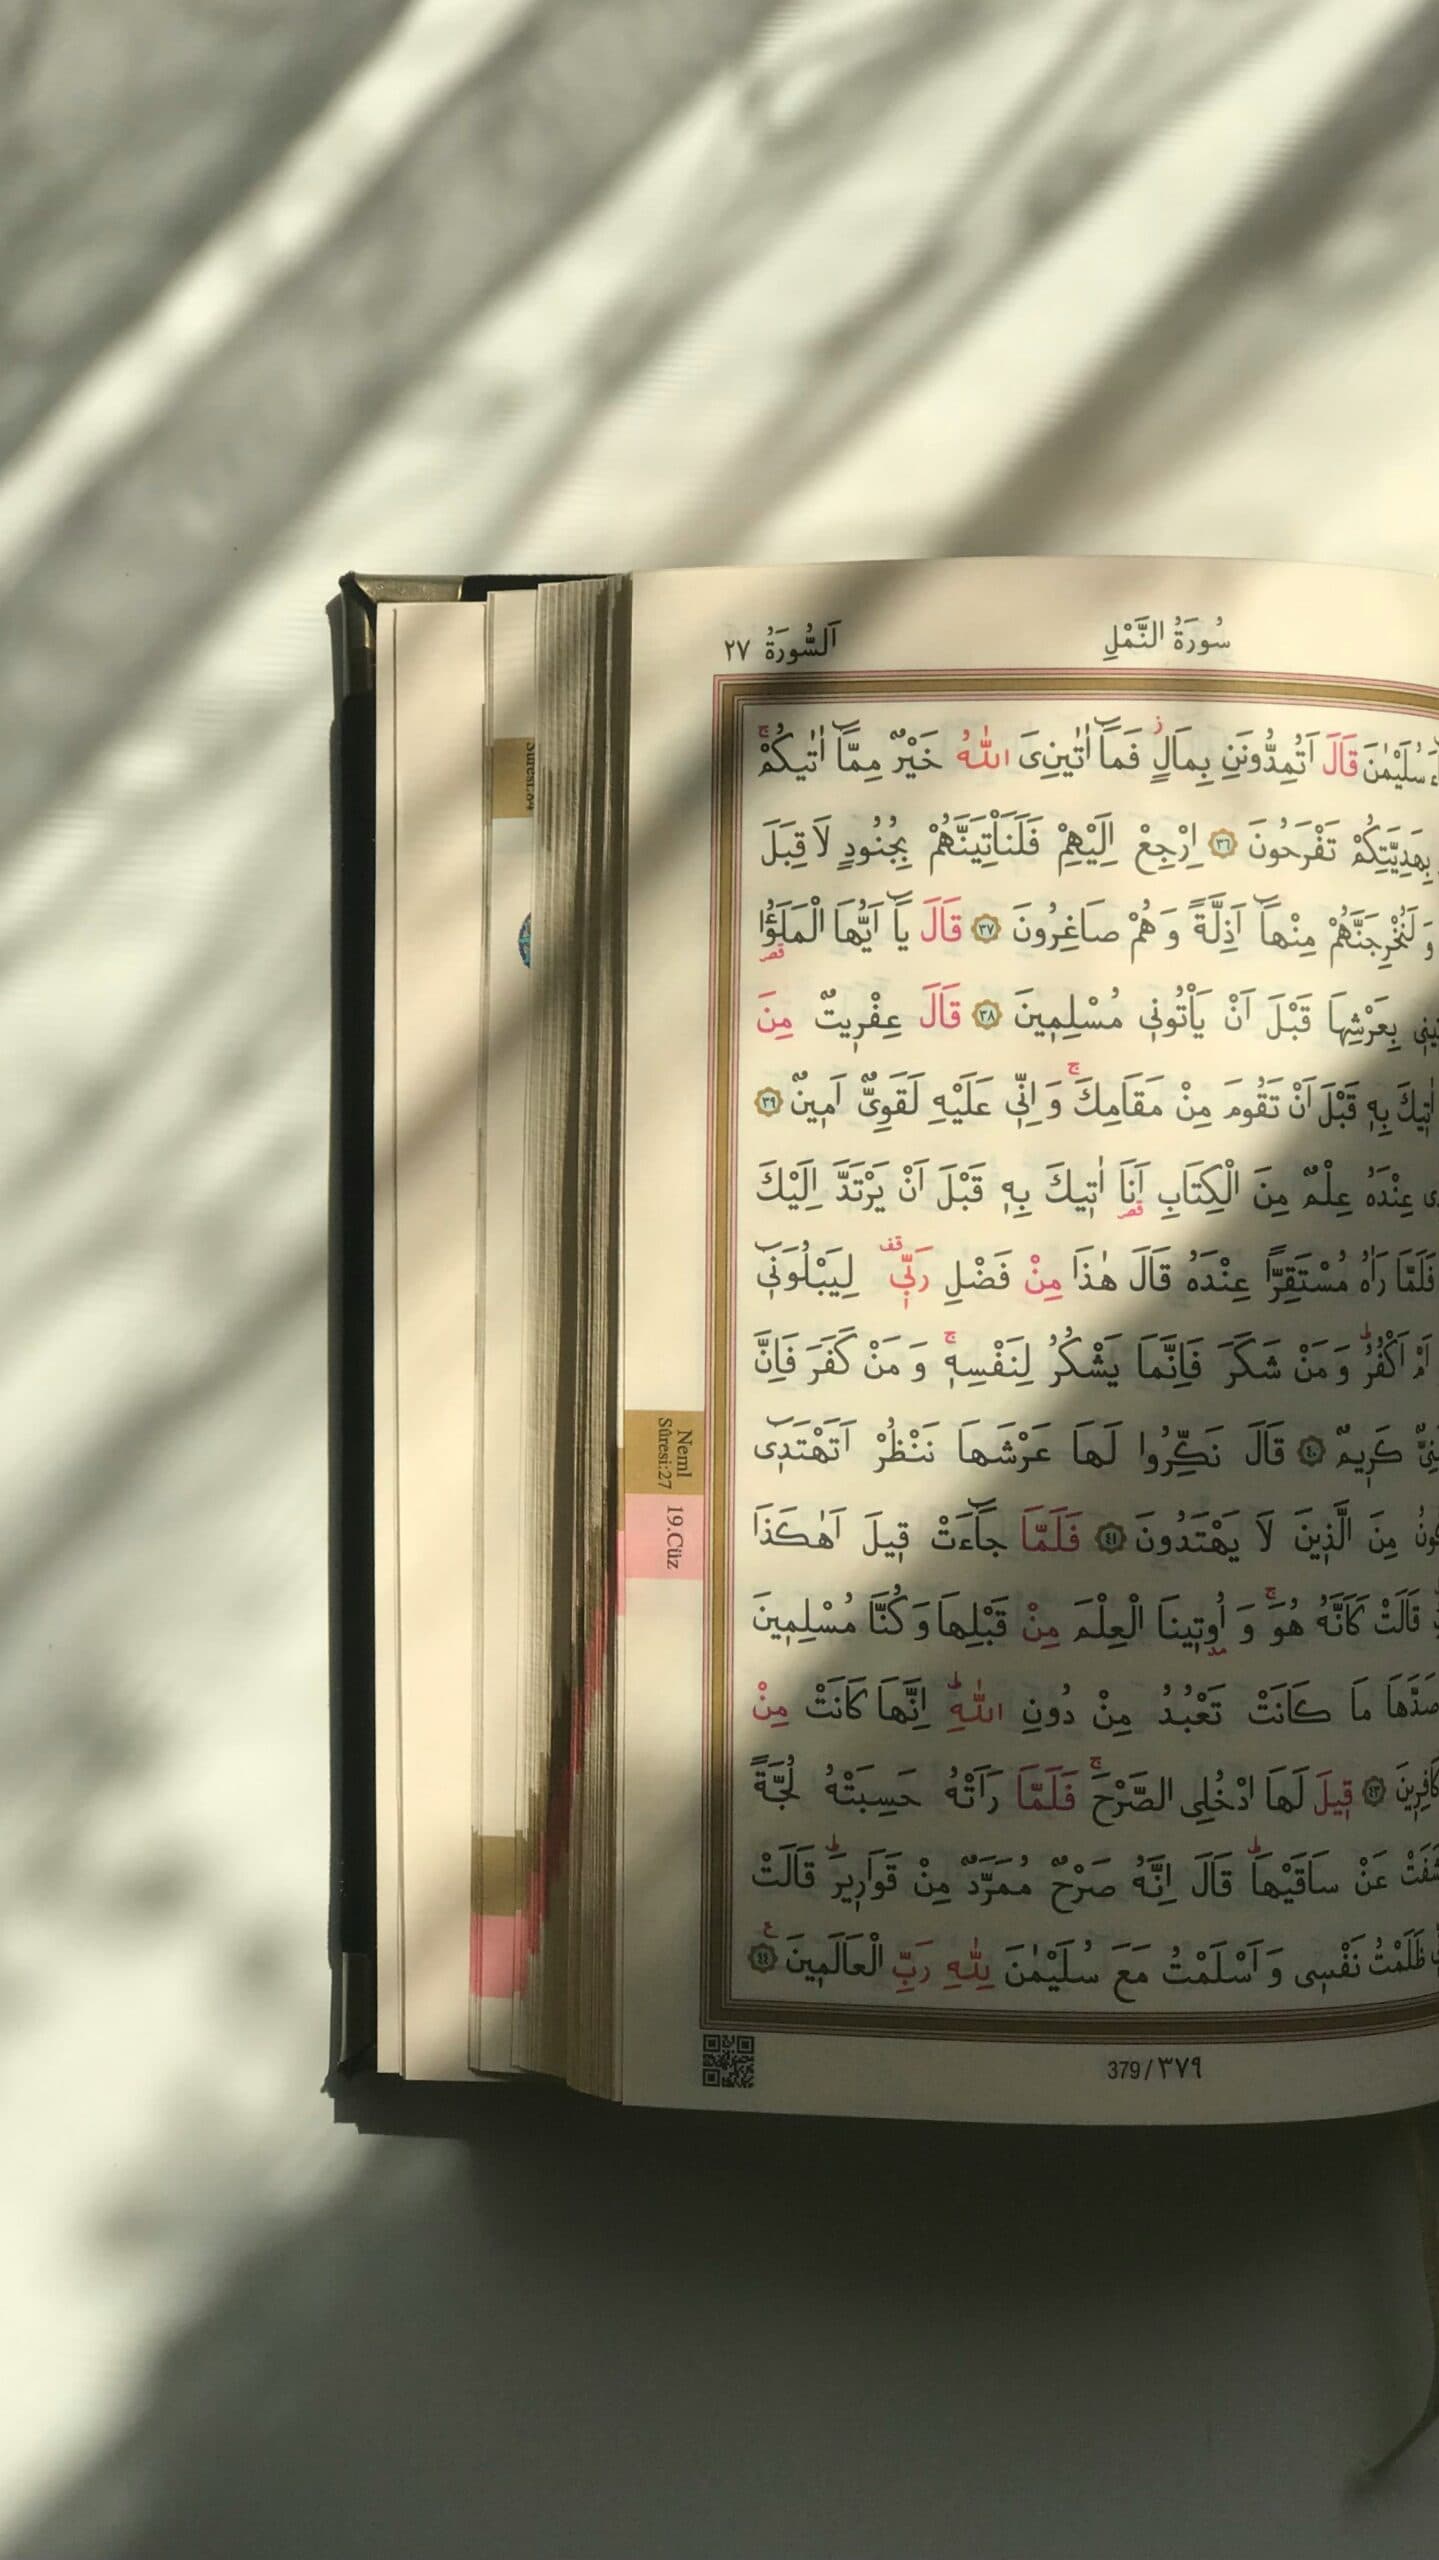 سُورَةُ النَّمْلِ اَلسُّورَةُ ٢٧
سُلَيْمٰنَ قَالَ اَتُمِدُّونَنِ بِمَالٍۘ فَمَٓا اٰتٰينِۦَ اللّٰهُ خَيْرٌ مِمَّٓا اٰتٰيكُمْۚ
بِهَدِيَّتِكُمْ تَفْرَحُونَ ٣٦ اِرْجِعْ اِلَيْهِمْ فَلَنَأْتِيَنَّهُمْ بِجُنُودٍ لَا قِبَلَ
وَلَنُخْرِجَنَّهُمْ مِنْهَٓا اَذِلَّةً وَهُمْ صَاغِرُونَ ٣٧ قَالَ يَٓا اَيُّهَا الْمَلَؤُ۬ا
بِعَرْشِهَا قَبْلَ اَنْ يَأْتُونٖي مُسْلِمٖينَ ٣٨ قَالَ عِفْرٖيتٌ مِنَ
اٰتٖيكَ بِهٖ قَبْلَ اَنْ تَقُومَ مِنْ مَقَامِكَۚ وَاِنّٖي عَلَيْهِ لَقَوِيٌّ اَمٖينٌ ٣٩
عِنْدَهُ عِلْمٌ مِنَ الْكِتَابِ اَنَا۬ اٰتٖيكَ بِهٖ قَبْلَ اَنْ يَرْتَدَّ اِلَيْكَ
فَلَمَّا رَاٰهُ مُسْتَقِرًّا عِنْدَهُ قَالَ هٰذَا مِنْ فَضْلِ رَبّٖي لِيَبْلُوَنٖٓي
اَمْ اَكْفُرُۜ وَمَنْ شَكَرَ فَاِنَّمَا يَشْكُرُ لِنَفْسِهٖۚ وَمَنْ كَفَرَ فَاِنَّ
كَرٖيمٌ ٤٠ قَالَ نَكِّرُوا لَهَا عَرْشَهَا نَنْظُرْ اَتَهْتَدٖٓي
مِنَ الَّذٖينَ لَا يَهْتَدُونَ ٤١ فَلَمَّا جَٓاءَتْ قٖيلَ اَهٰكَذَا
قَالَتْ كَاَنَّهُ هُوَۚ وَاُو۫تٖينَا الْعِلْمَ مِنْ قَبْلِهَا وَكُنَّا مُسْلِمٖينَ
مَا كَانَتْ تَعْبُدُ مِنْ دُونِ اللّٰهِۜ اِنَّهَا كَانَتْ مِنْ
كَافِرٖينَ ٤٣ قٖيلَ لَهَا ادْخُلِي الصَّرْحَۚ فَلَمَّا رَاَتْهُ حَسِبَتْهُ لُجَّةً
عَنْ سَاقَيْهَاۜ قَالَ اِنَّهُ صَرْحٌ مُمَرَّدٌ مِنْ قَوَارٖيرَۜ قَالَتْ
ظَلَمْتُ نَفْسٖي وَاَسْلَمْتُ مَعَ سُلَيْمٰنَ لِلّٰهِ رَبِّ الْعَالَمٖينَ ٤٤
Neml
Sûresi:27
19.Cüz
379/٣٧٩